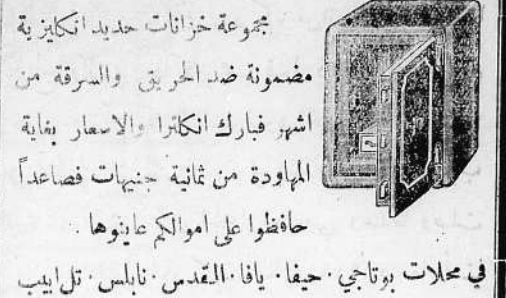 مجموعة خزانات حديد انكليزية
مضمونة ضد الحريق والسرقة من
اشهر فبارك انكلترا والاسعار بغاية
المهاودة من ثمانية جنيهات فصاعداً
حافظوا على اموالكم عاينوها .
في محلات بوتاجي . حيفا . يافا . القدس . نابلس . تل ابيب